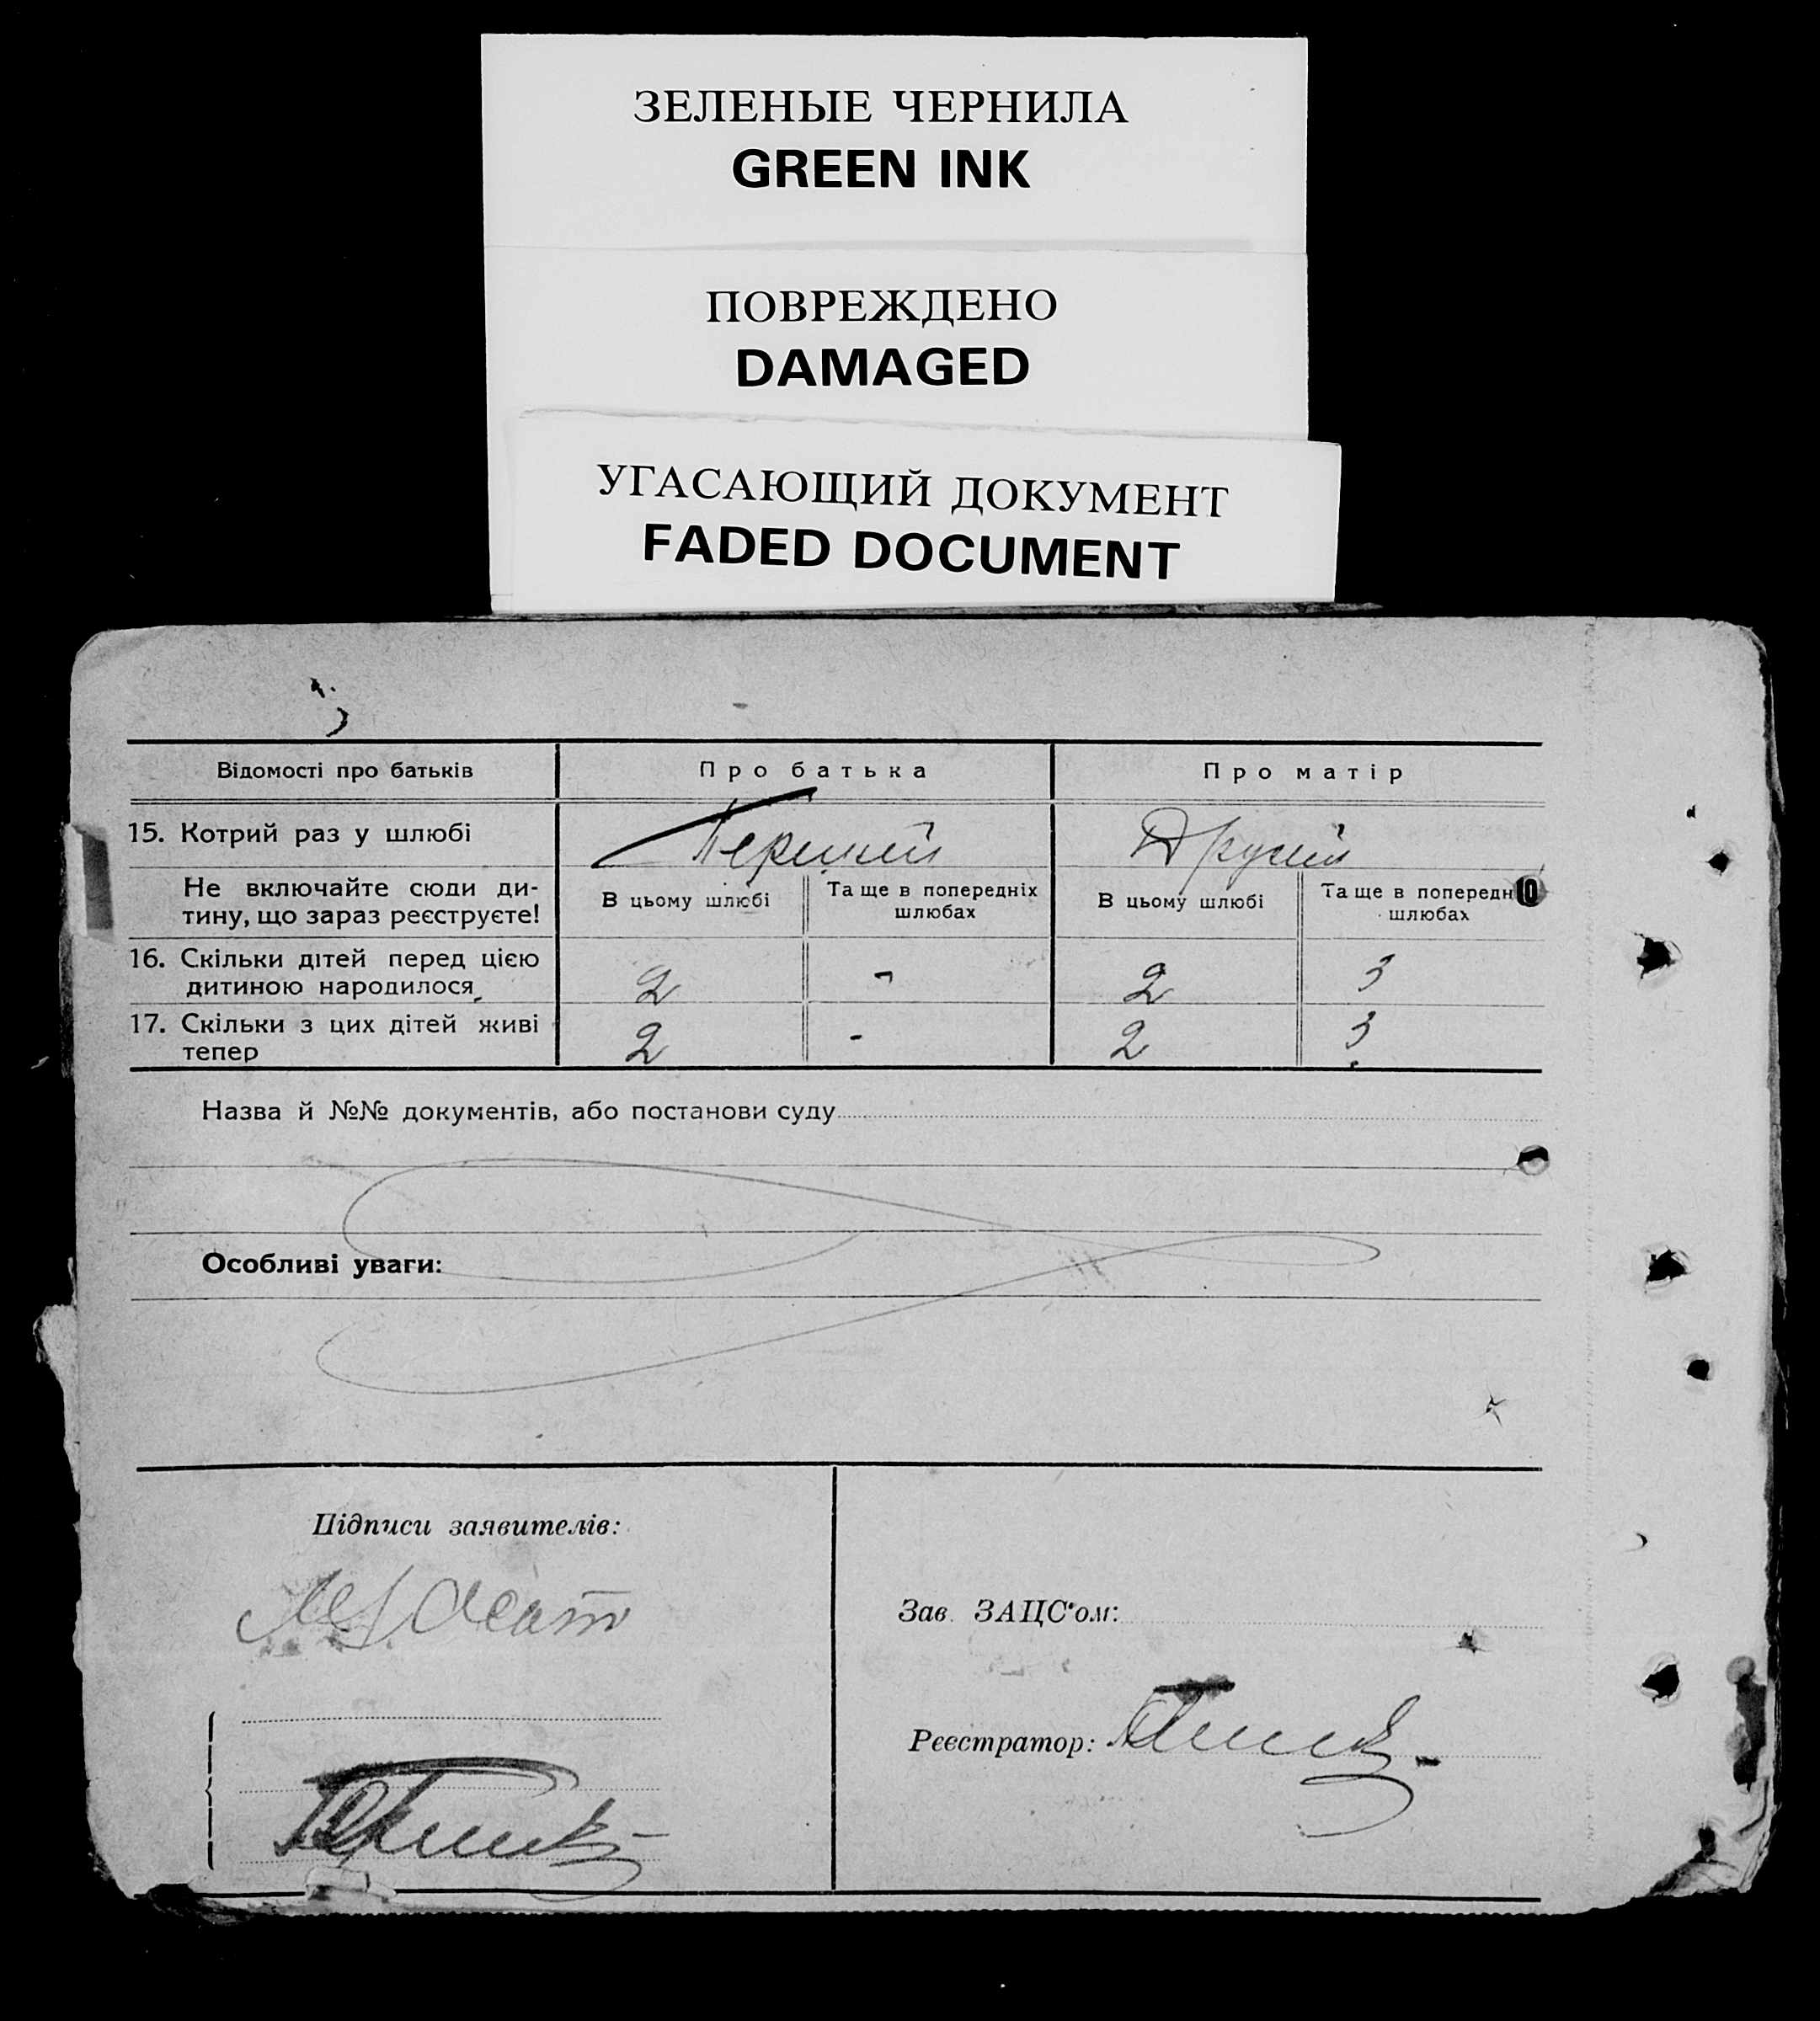 ЗЕЛЕНЫЕ ЧЕРНИЛА
GREEN INK
ПОВРЕЖДЕНО
DAMAGED
УГАСАЮЩИЙ ДОКУМЕНТ
FADED DOCUMENT
Відомості про батьків Про батька Про матір
15. Котрий раз у шлюбі Перший Другий
Не включайте сюди ди-
тину, що зараз реєструєте!
В цьому шлюбі
Та ще в попередніх
шлюбах
В цьому шлюбі
Та ще в попередн
шлюбах
16. Скільки дітей перед цією
дитиною народилося 2 - 2 3
17. Скільки з цих дітей живі
тепер 2 - 2 3
Назва й №№ документів, або постанови суду
Особливі уваги:
Підписи заявителів:
Зав. ЗАЦС'ом:
Реєстратор: